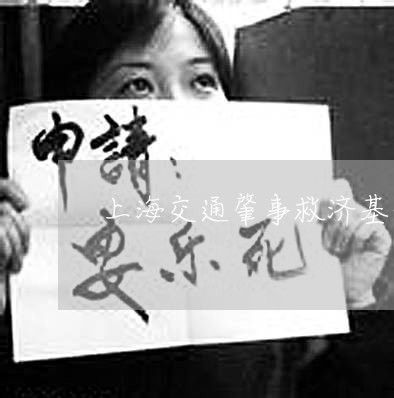 申請：
上海交通肇事救济基
要乐死